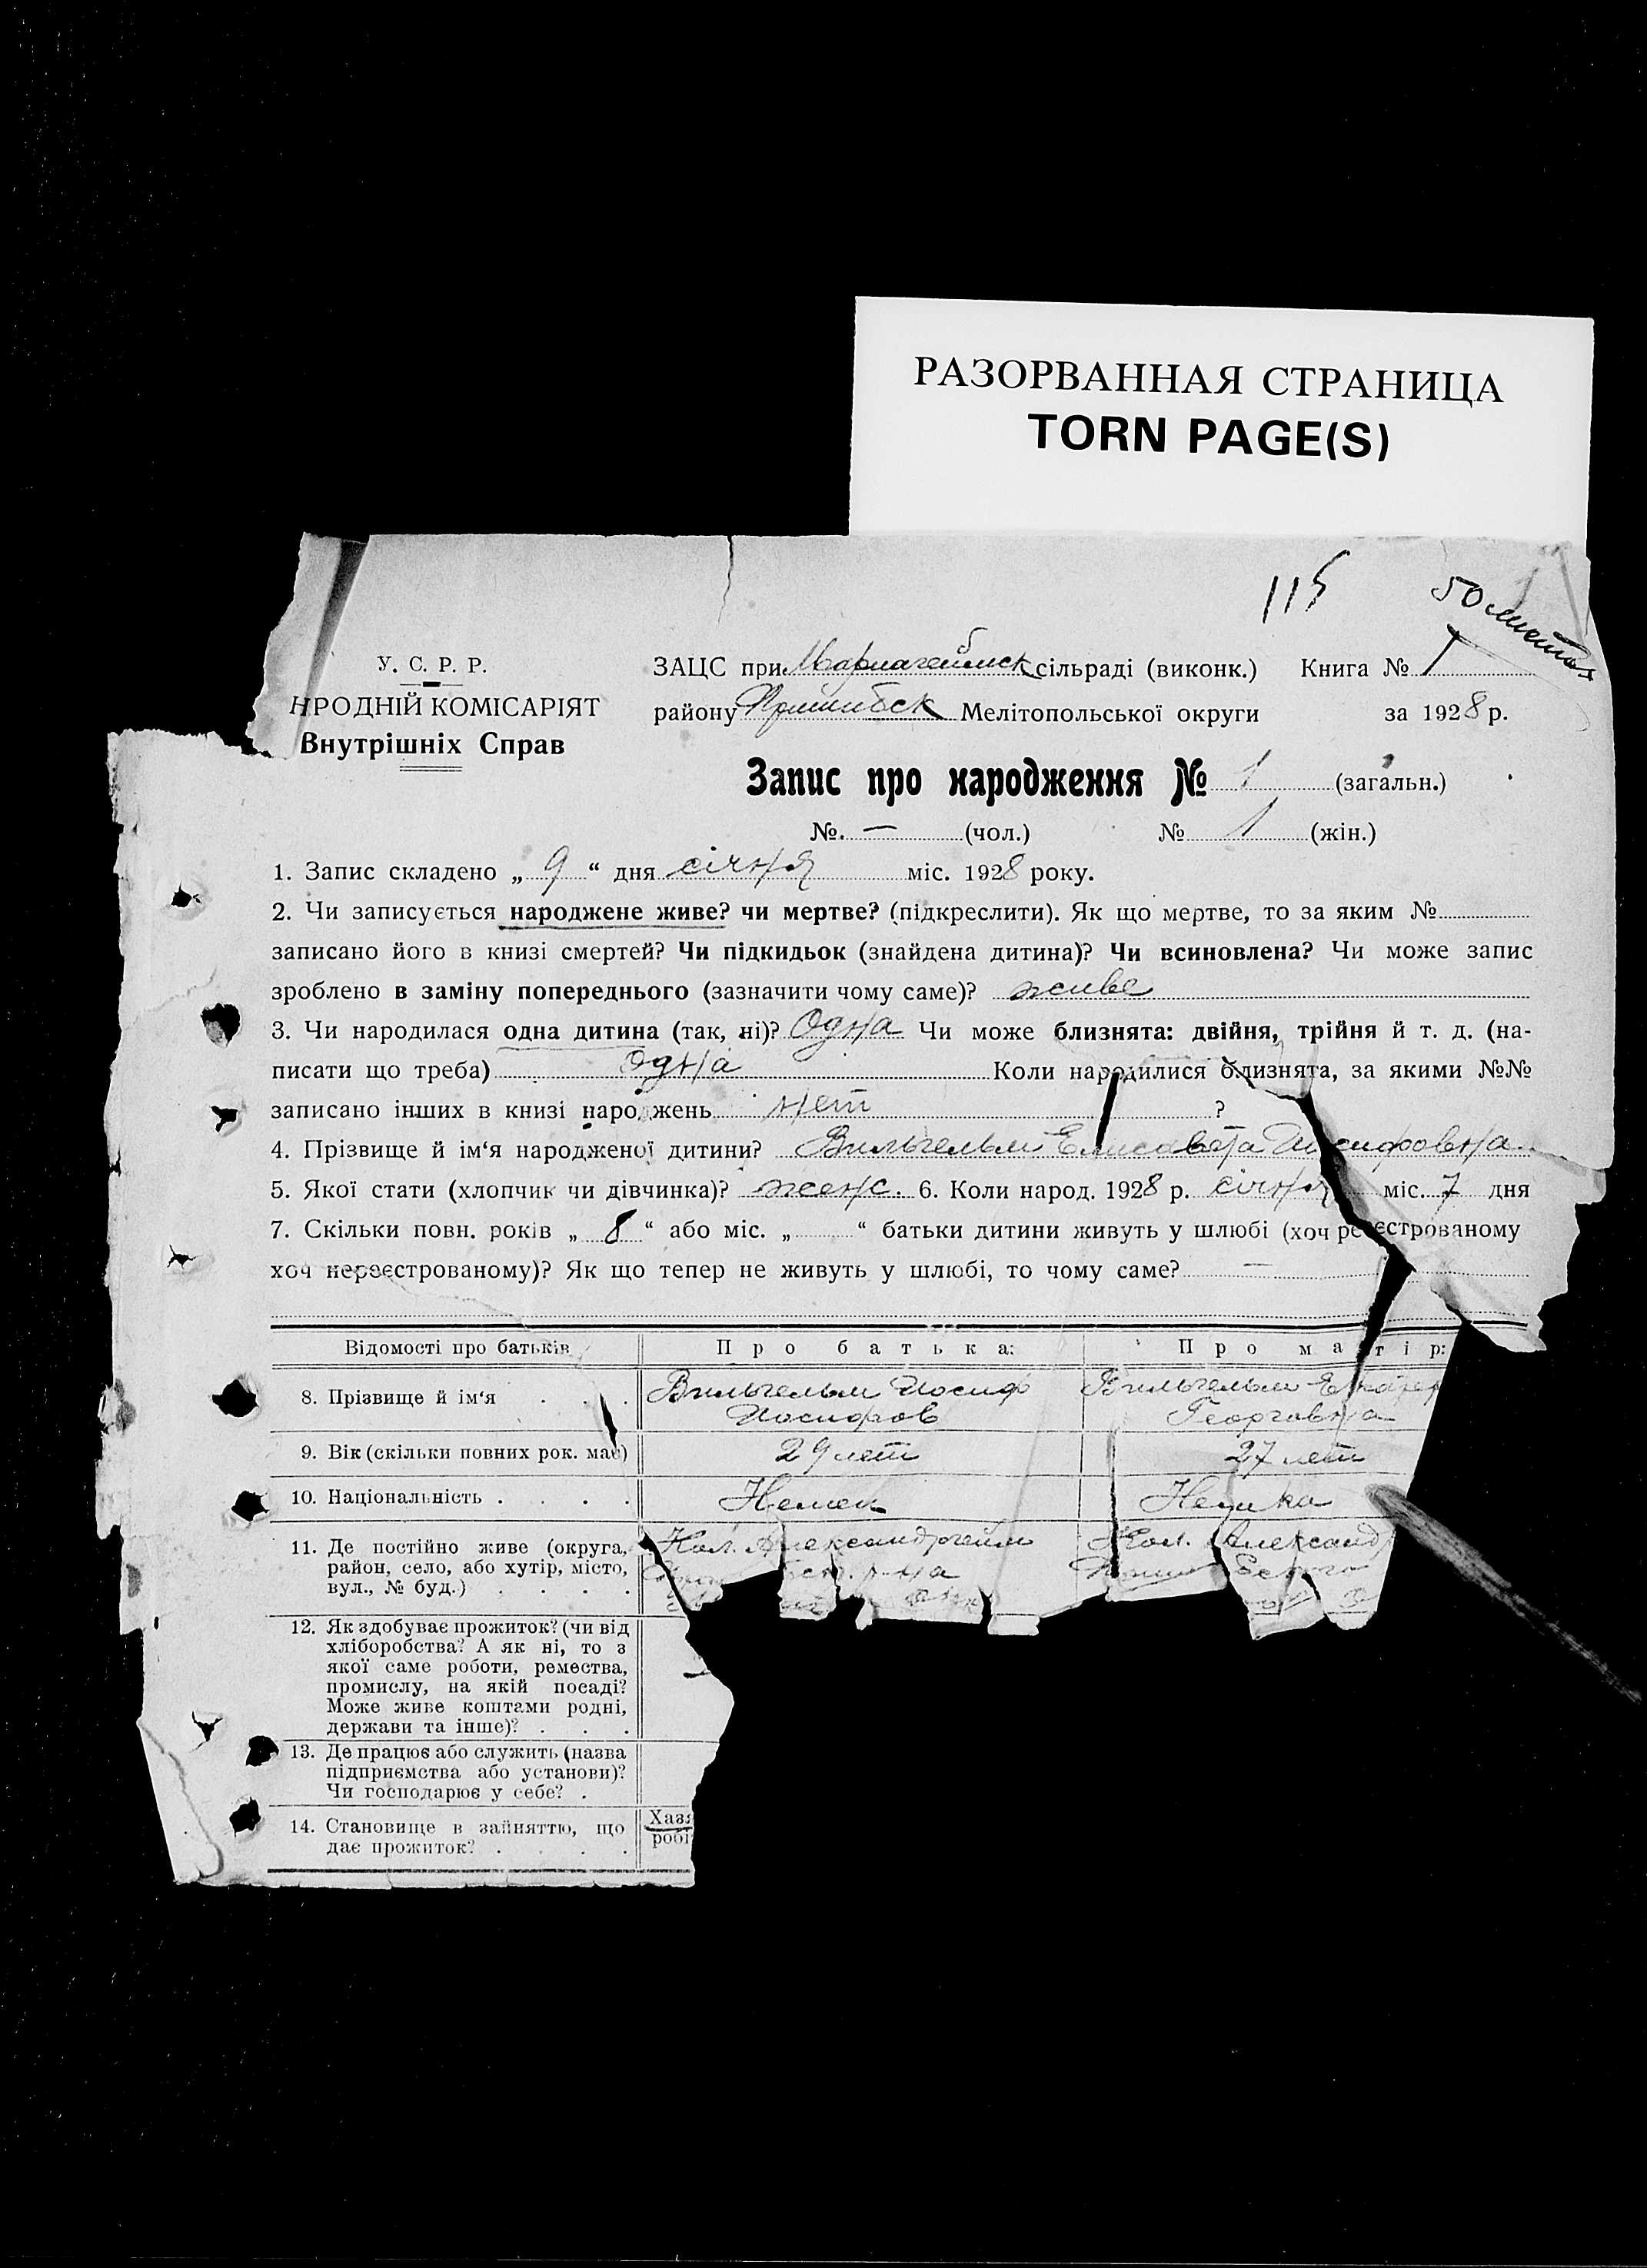 РАЗОРВАННАЯ СТРАНИЦА
TORN PAGE(S)
115
У. С. Р. Р.
НРОДНІЙ КОМІСАРІЯТ
Внутрішніх Справ
ЗАЦС при Мариагеймск сільраді (виконк.) Книга № 1
району Пришибск Мелітопольської округи за 1928 р.
Запис про народження № 1 (загальн.)
№. — (чол.) № 1 (жін.)
1. Запис складено „ 9 “ дня січня міс. 1928 року.
2. Чи записується народжене живе? чи мертве? (підкреслити). Як що мертве, то за яким №
записано його в книзі смертей? Чи підкидьок (знайдена дитина)? Чи всиновлена? Чи може запис
зроблено в заміну попереднього (зазначити чому саме)? живе
3. Чи народилася одна дитина (так, ні)? Одна Чи може близнята: двійня, трійня й т. д. (на-
писати що треба) одна Коли народилися близнята, за якими №№
записано інших в книзі народжень нет ?
4. Прізвище й ім‘я народженої дитини? Вильгельм Елисавета Иосифовна
5. Якої стати (хлопчик чи дівчинка)? женс. 6. Коли народ. 1928 р. січня міс. 7 дня
7. Скільки повн. років „ 8 “ або міс. „ “ батьки дитини живуть у шлюбі (хоч реєстрованому
хоч нереєстрованому)? Як що тепер не живуть у шлюбі, то чому саме? —
Відомості про батьків Про батька: Про матір:
8. Прізвище й ім‘я . . . Вильгельм Иосиф Вильгельм Екатер
Иосифов Георговна
9. Вік (скільки повних рок. має) 29 лет 27 лет
10. Національність . . . . Немец Немка
11. Де постійно живе (округа, Кол. Александргейм Кол. Александ
район, село, або хутір, місто, р-на
вул., № буд.) . . . .
12. Як здобуває прожиток? (чи від
хліборобства? А як ні, то з
якої саме роботи, ремества,
промислу, на якій посаді?
Може живе коштами родні,
держави та інше)? . . .
13. Де працює або служить (назва
підприємства або установи)?
Чи господарює у себе? .
14. Становище в зайняттю, що Хазя
дає прожиток? . . . . робі